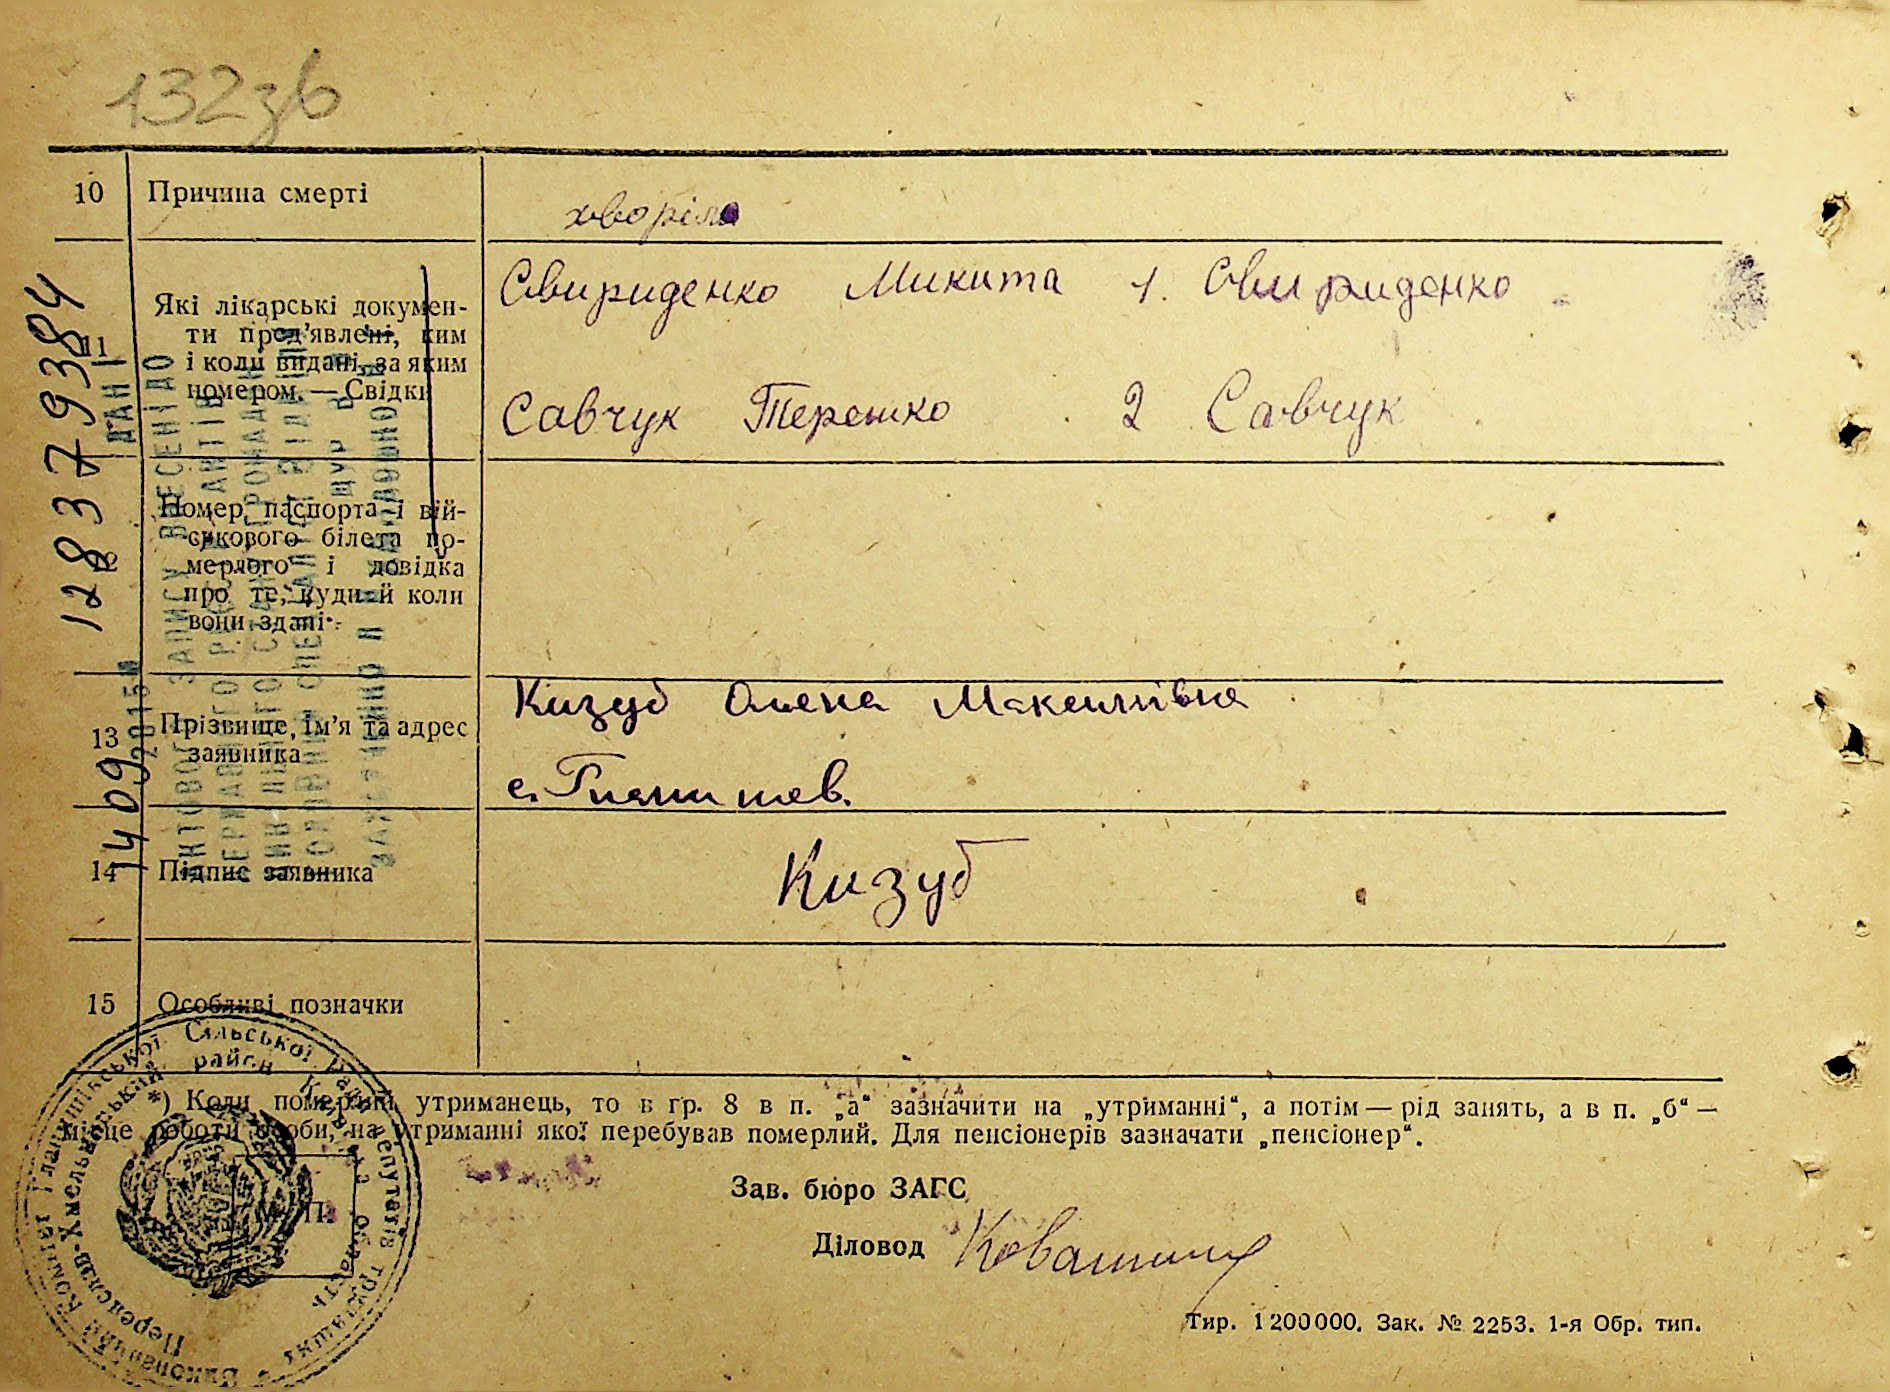 132зв
10 Причина смерті
хворіла
11 Які лікарські докумен-
ти пред'явлені, ким
і коли видані, за яким
номером. — Свідки
Свириденко Микита 1. Свириденко
Савчук Терешко 2 Савчук
12 Номер паспорта і вій-
ськового білета по-
мерлого і довідка
про те, куди й коли
вони здані
13 Прізвище, ім'я та адрес
заявника
Кизуб Олена Максимівна
с.
14 Підпис заявника
Кизуб
15 Особливі позначки
*) Коли померлий утриманець, то в гр. 8 в п. „а“ зазначити на „утриманні“, а потім — рід занять, а в п. „б“ —
місце роботи особи, на утриманні якої перебував померлий. Для пенсіонерів зазначати „пенсіонер“.
Зав. бюро ЗАГС
М. П.
Діловод
Тир. 1200000. Зак. № 2253. 1-я Обр. тип.
128379384
1409 2015
ДАНІ
АКТОВОГО ЗАПИСУ ВНЕСЕНІ ДО
Сільської Ради депутатів трудящих
Переяслав-Хмельницький район
область